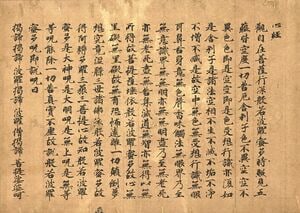 心經
觀自在菩薩行深般若波羅蜜多時照見五
蘊皆空度一切苦厄舍利子色不異空空不
異色色即是空空即是色受想行識亦復如
是舍利子是諸法空相不生不滅不垢不淨
不增不減是故空中無色無受想行識無眼
耳鼻舌身意無色聲香味觸法無眼界乃至
無意識界無無明亦無無明盡乃至無老死
亦無老死盡無苦集滅道無智亦無得以無
所得故菩提薩埵依般若波羅蜜多故心無
罣礙無罣礙故無有恐怖遠離一切顛倒夢
想究竟涅槃三世諸佛依般若波羅蜜多故
得阿耨多羅三藐三菩提故知般若波羅
蜜多是大神呪是大明呪是無上呪是無等
等呪能除一切苦真實不虛故說般若波羅
蜜多呪即說呪曰
揭諦揭諦 波羅揭諦 波羅僧揭諦 菩提